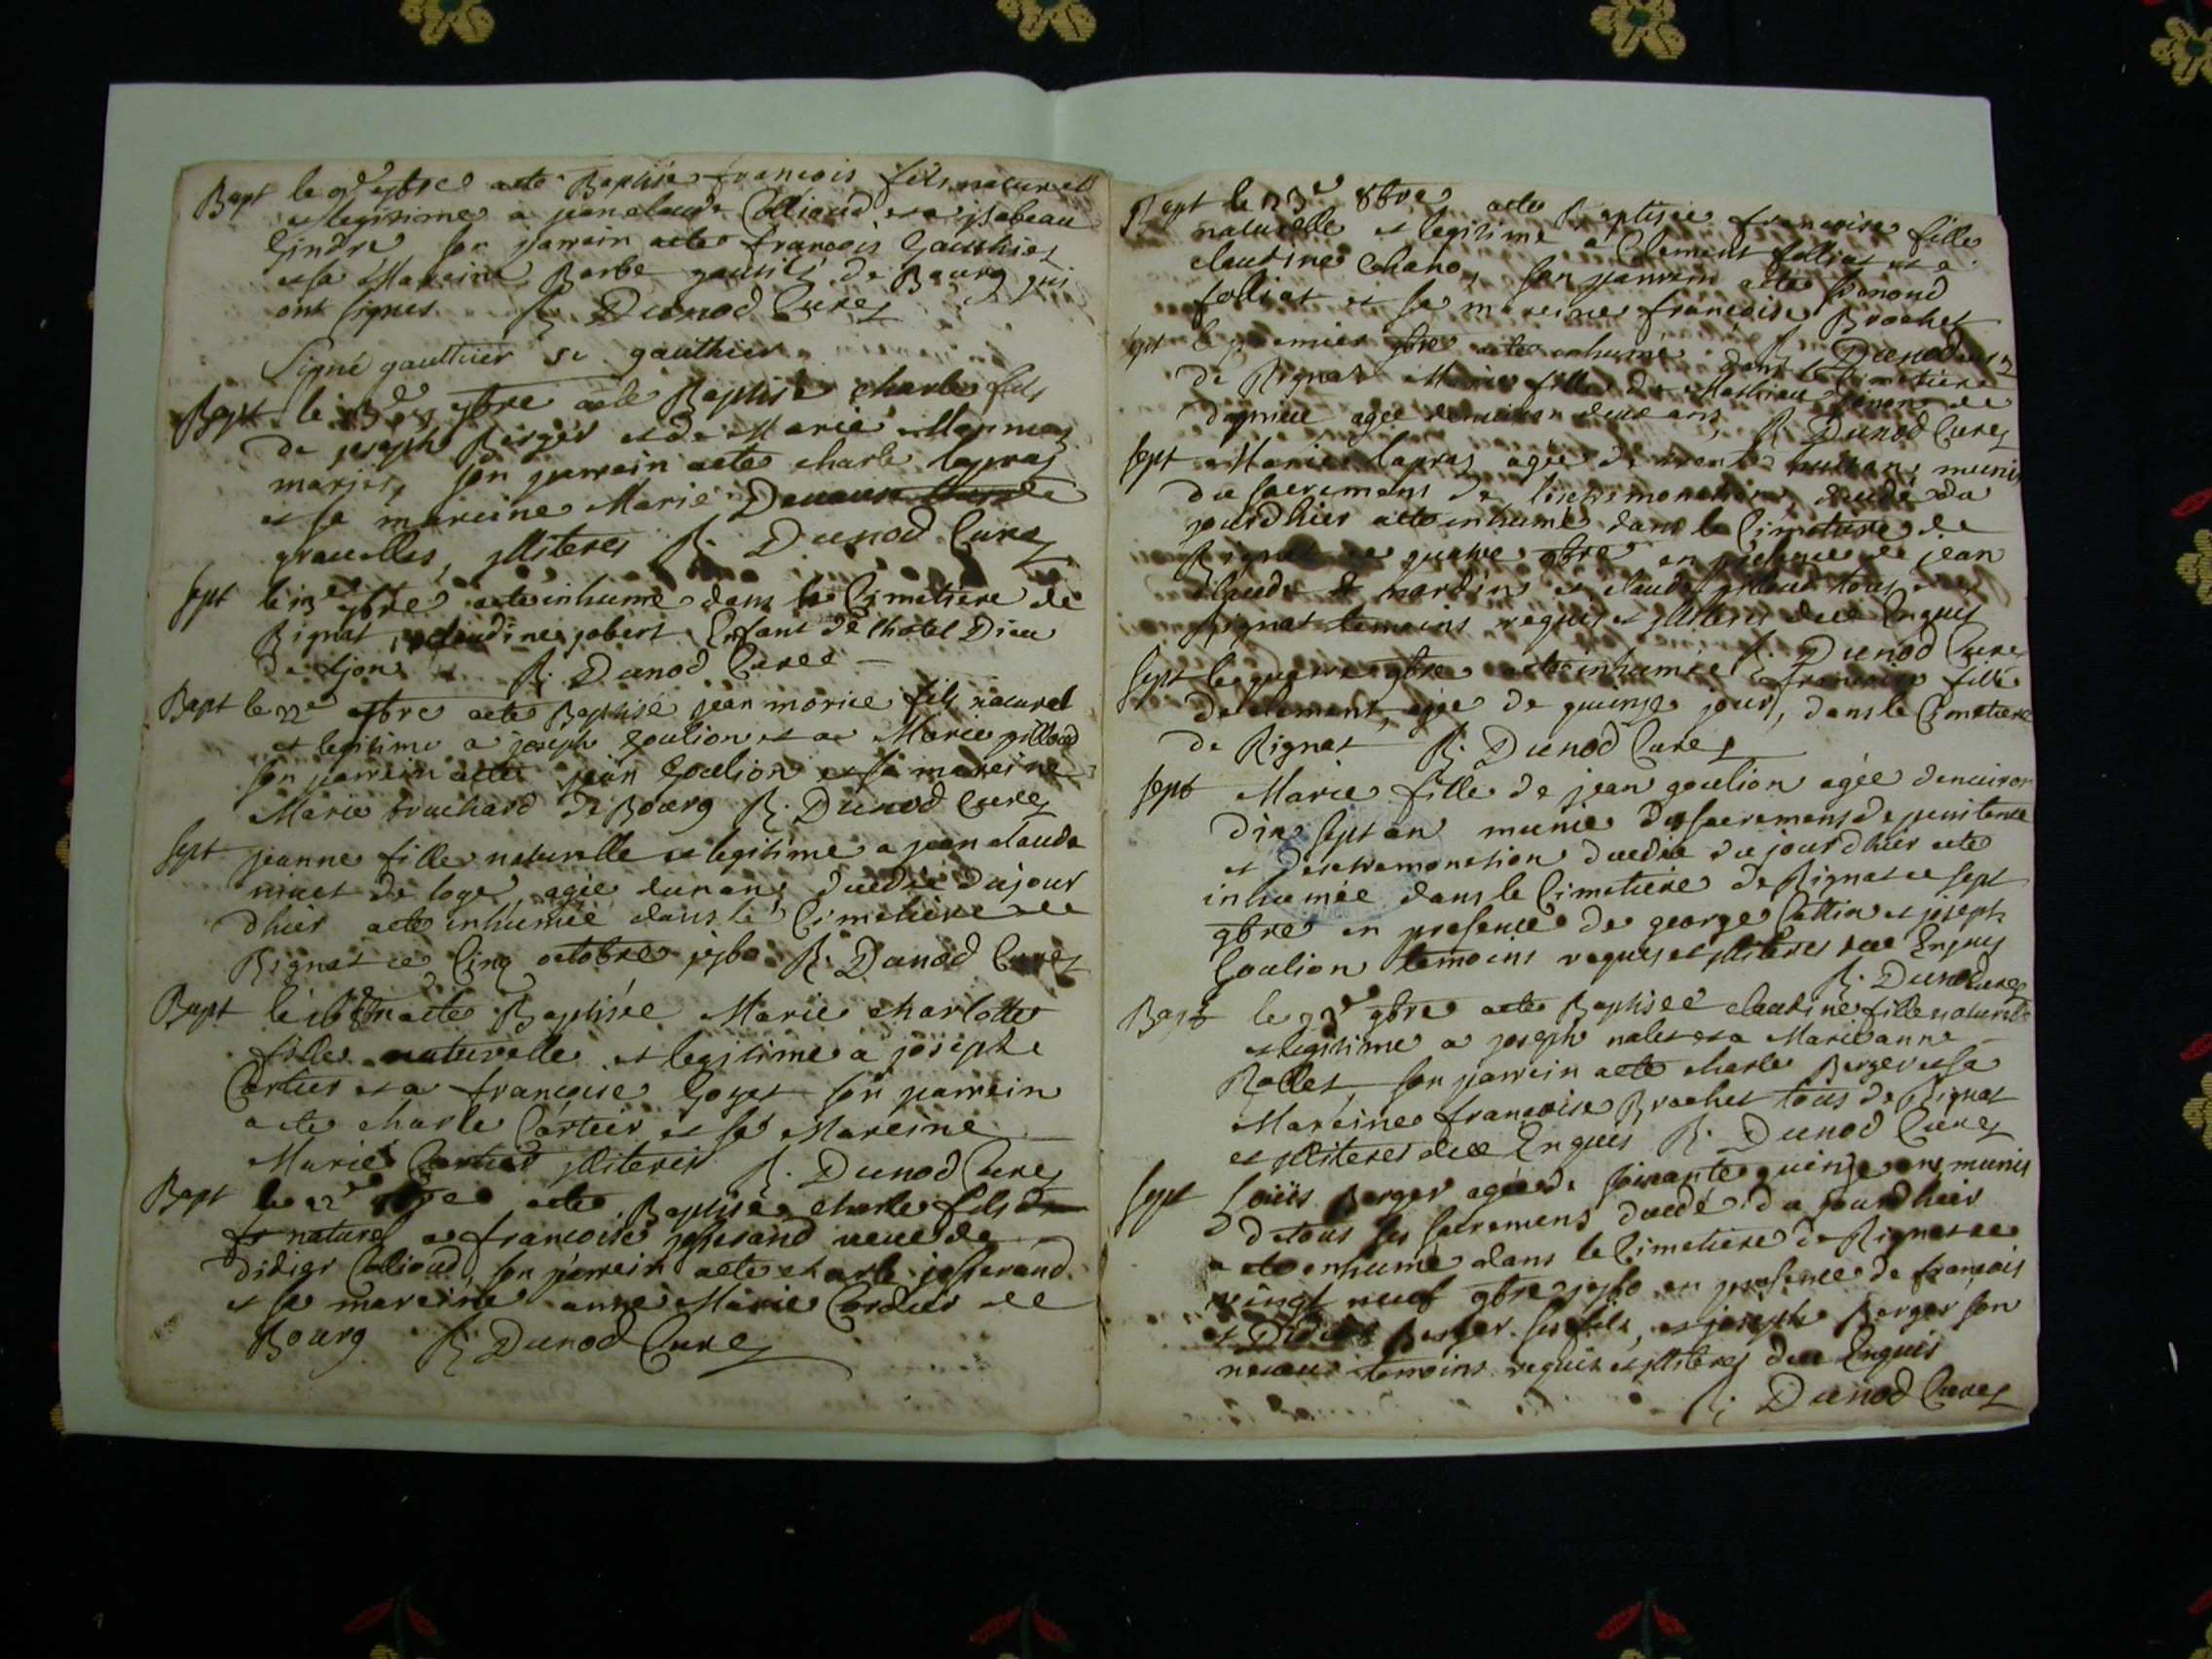 Bapt le 9e 7bre a ete Baptisé francois fils naturel
et legitime a jean claude Colliaud et a jsabeau
Gindre son parrein a ete francois Gauthier
et sa Mareine Barbe gauthié de Bourg qui
ont signes R. Dunod Curez
Signé gauthier
Bapt le 7bre a ete Baptisé charle fils
de joseph Berger et de Marie
mariés, son parrein a ete charle lapraz
et sa mareine Marie
grauelles, jlliteres R. Dunod Curez
sept le 13e 7bre a ete inhumé dans le Cimetiere de
Rignat, claudine jobert Enfant de l'hotel Dieu
de Ljon R. Dunod Curéé
Bapt le 22e 7bre a ete Baptisé jean morice fils naturel
et legitime a joseph goulion et a Marie pilloud
son parrein a ete jean Goulion et sa mareine
Marie bruchard de Bourg R. Dunod Curez
sept jeanne fille naturelle et legitime a jean claude
niuet de loge, agée dun an, decedée du jour
dhier a ete inhumée dans le Cimetiere de
Rignat ce Cinq octobre R. Dunod Curez
Bapt le a ete Baptisée Marie charlotte
fille naturelle et legitime a josephe
Cartier et a francoise Goyet son parrein
a ete charle Cartier et sa Mareine
Marie Cartier jlliteres R. Dunod Curez
Bapt le 22e a ete Baptisé charle fils
naturel a francoise josserand veue de
didier Colioud, son parrein a ete charle josserand
et sa mareine anne Marie Cordier de
Bourg R. Dunod Curez
Bapt le 23e 8bre a ete Baptisée francoise fille
naturelle et legitime a Clement folliat et a
claudine Chano, son parrein a ete
folliat et sa mareine francoise Brochet
R. Dunod
sept le premier 9bre a ete inhumé dans le Cimetiere
de Rignat Marie fille de Mathieu de
agée denuiron deux ans, R. Dunod Curez
sept Marie lapraz agée de trente huit ans munie
du sacremens de lextremonction decedé du
jourdhier a ete inhumé dans le Cimetiere de
Rignat ce quatre 9bre en presence de jean
claude nardin et claude pilloud tous
Rignat temoins requis et jlliteres dce Enquis
R. Dunod Curez
sept le quatre 9bre a ete inhumée francoise fille
de clement, agée de quinze jour, dans le Cimetiere
de Rignat R. Dunod Curez
sept Marie fille de jean goulion agée denuiron
dix sept an munie des sacremens de penitence
et dextremonction decedée du jourdhier a ete
inhumée dans le Cimetiere de Rignat ce sept
9bre en presence de george Cattin et joseph
Goulion temoins requis et jlliteres dce Enquis
R. Dunod Curez
Bapt le 9bre a ete Baptisée claudine fille naturelle
et legitime a joseph nalet et a Marie anne
Rollet, son parrein a ete charle Berger et sa
Mareine francoise Brochet tous de Rignat
et jlliteres dce Enquis R. Dunod Curez
sept Loüis Berger agé de soixante quinze ans munis
de tous ses sacremens decedé du jourdhier
a ete inhumé dans le Cimetiere de Rignat ce
vingt neuf 9bre en presence de francois
et Didier Berger ses fils, et joseph Berger son
neueu temoins requis et jlliteres dce Enquis
R. Dunod Curez